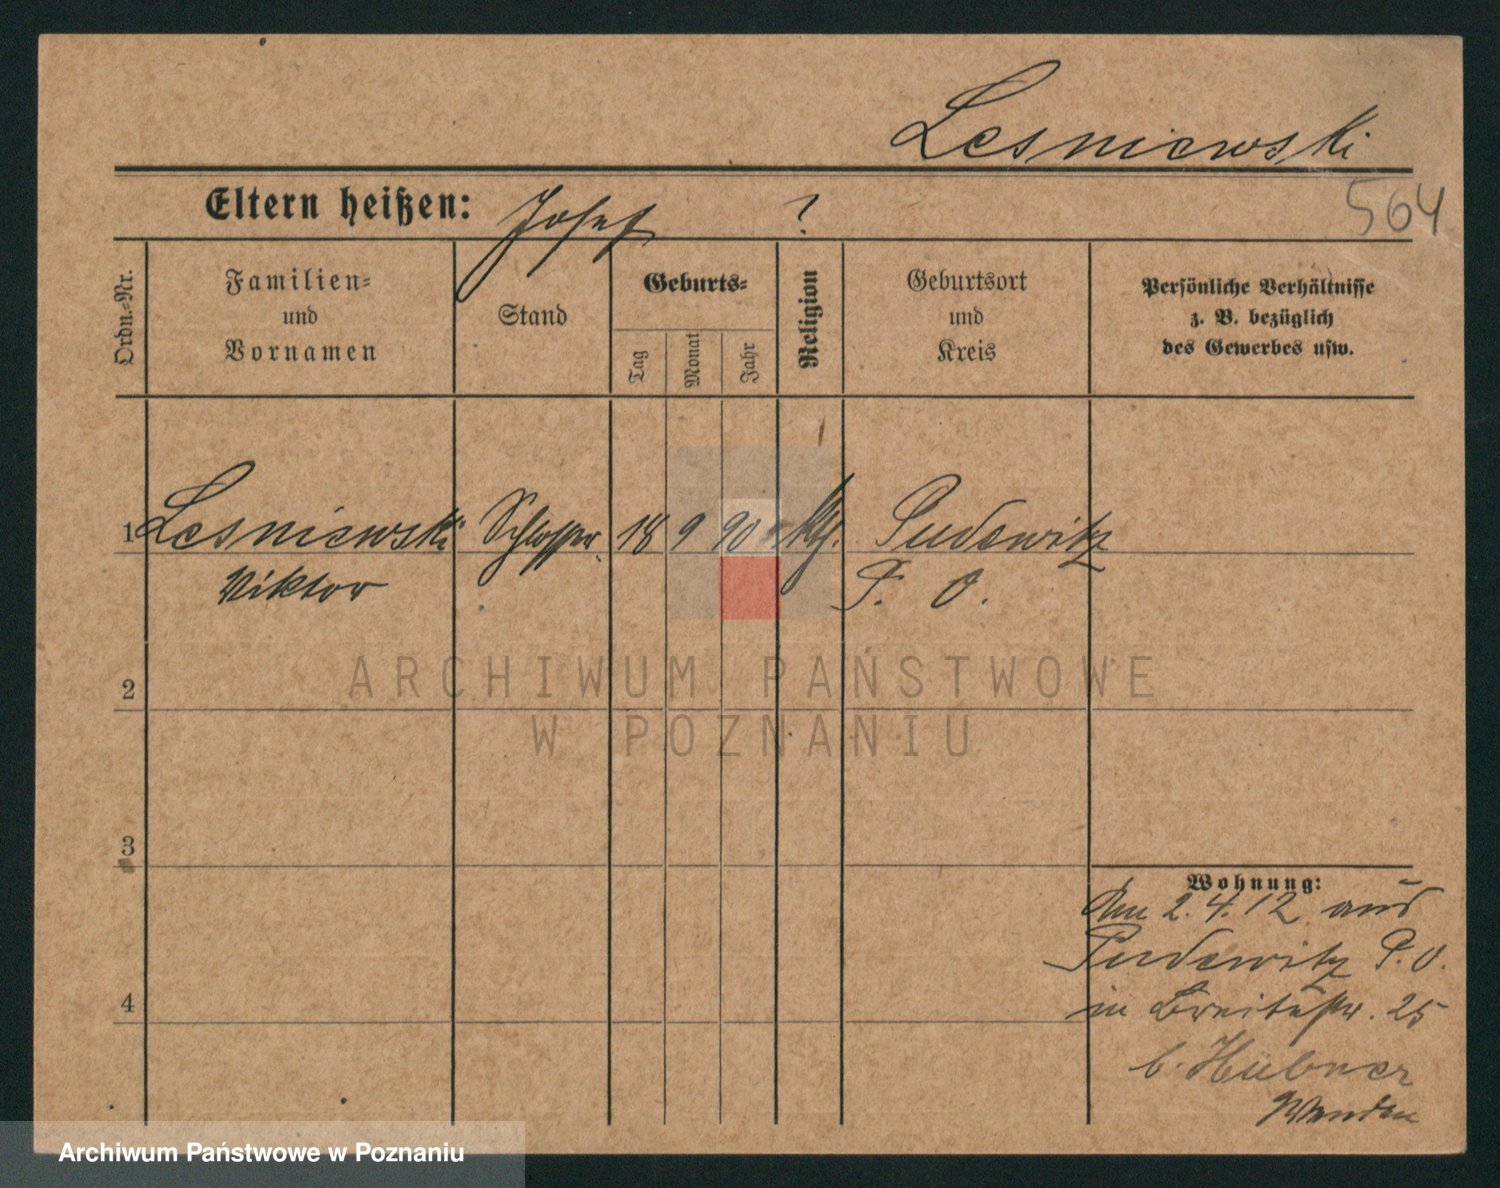 Lesniewski
Eltern heißen: Josef ?
564
Ordn.-Nr.
Familien-
und
Vornamen
Stand
Geburts-
Tag
Monat
Jahr
Religion
Geburtsort
und
Kreis
Persönliche Verhältnisse
z. B. bezüglich
des Gewerbes usw.
1 Lesniewski Schlosser 18 9 90 Pudewitz
Viktor P. O.
2
3
4
Wohnung:
2.4.12 aus
Pudewitz P. O.
in Breitestr. 25
b. Hübner
ARCHIWUM PAŃSTWOWE
W POZNANIU
Archiwum Państwowe w Poznaniu